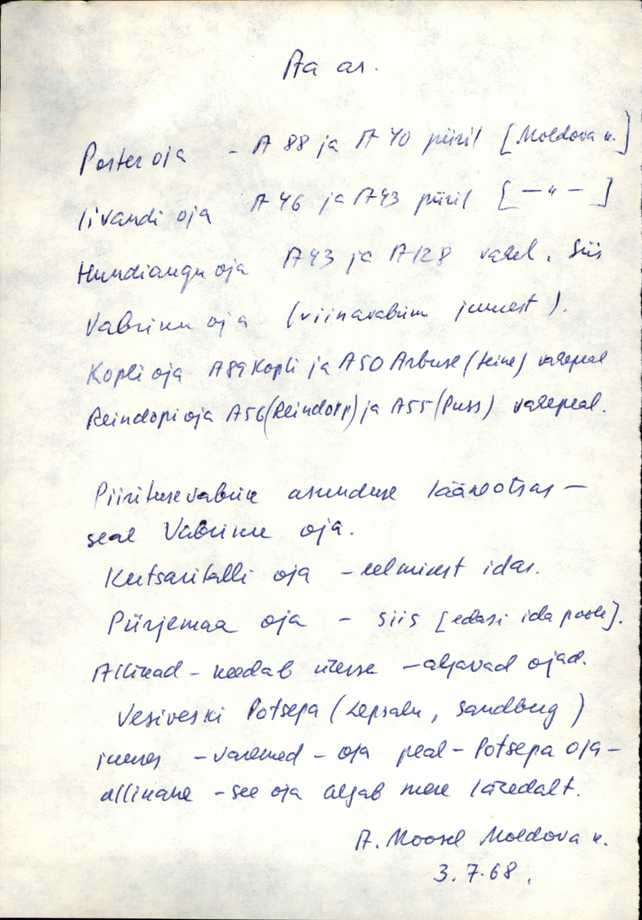 Aa as.
Posteroja - A 88 ja A 40 piiril [Moldova k.]
Iivandi oja A 46 ja A43 piiril [ — " — ]
Hundiangu oja A43 ja A128 vahel. Siis
Vabriku oja (viinavabriku juurest).
Kopli oja A89 Kopli ja A50 Arbuse (teine) vahepeal
Reindopi oja A56 (Reindorp) ja A55 (Puss) vahepeal.
Piiritusevabrik asunduse lääneotsas -
seal Vabriku oja.
Kutsaritalli oja - eelmisest idas.
Piirjemaa oja - siis [edasi ida poole].
Allikad - algavad ojad.
Vesiveski Potsepa (Lepsalu, Sandberg)
juures - varemed - oja peal - Potsepa oja -
allikane - see oja algab mere lähedalt.
A. Moosel Moldova k.
3.7.68.